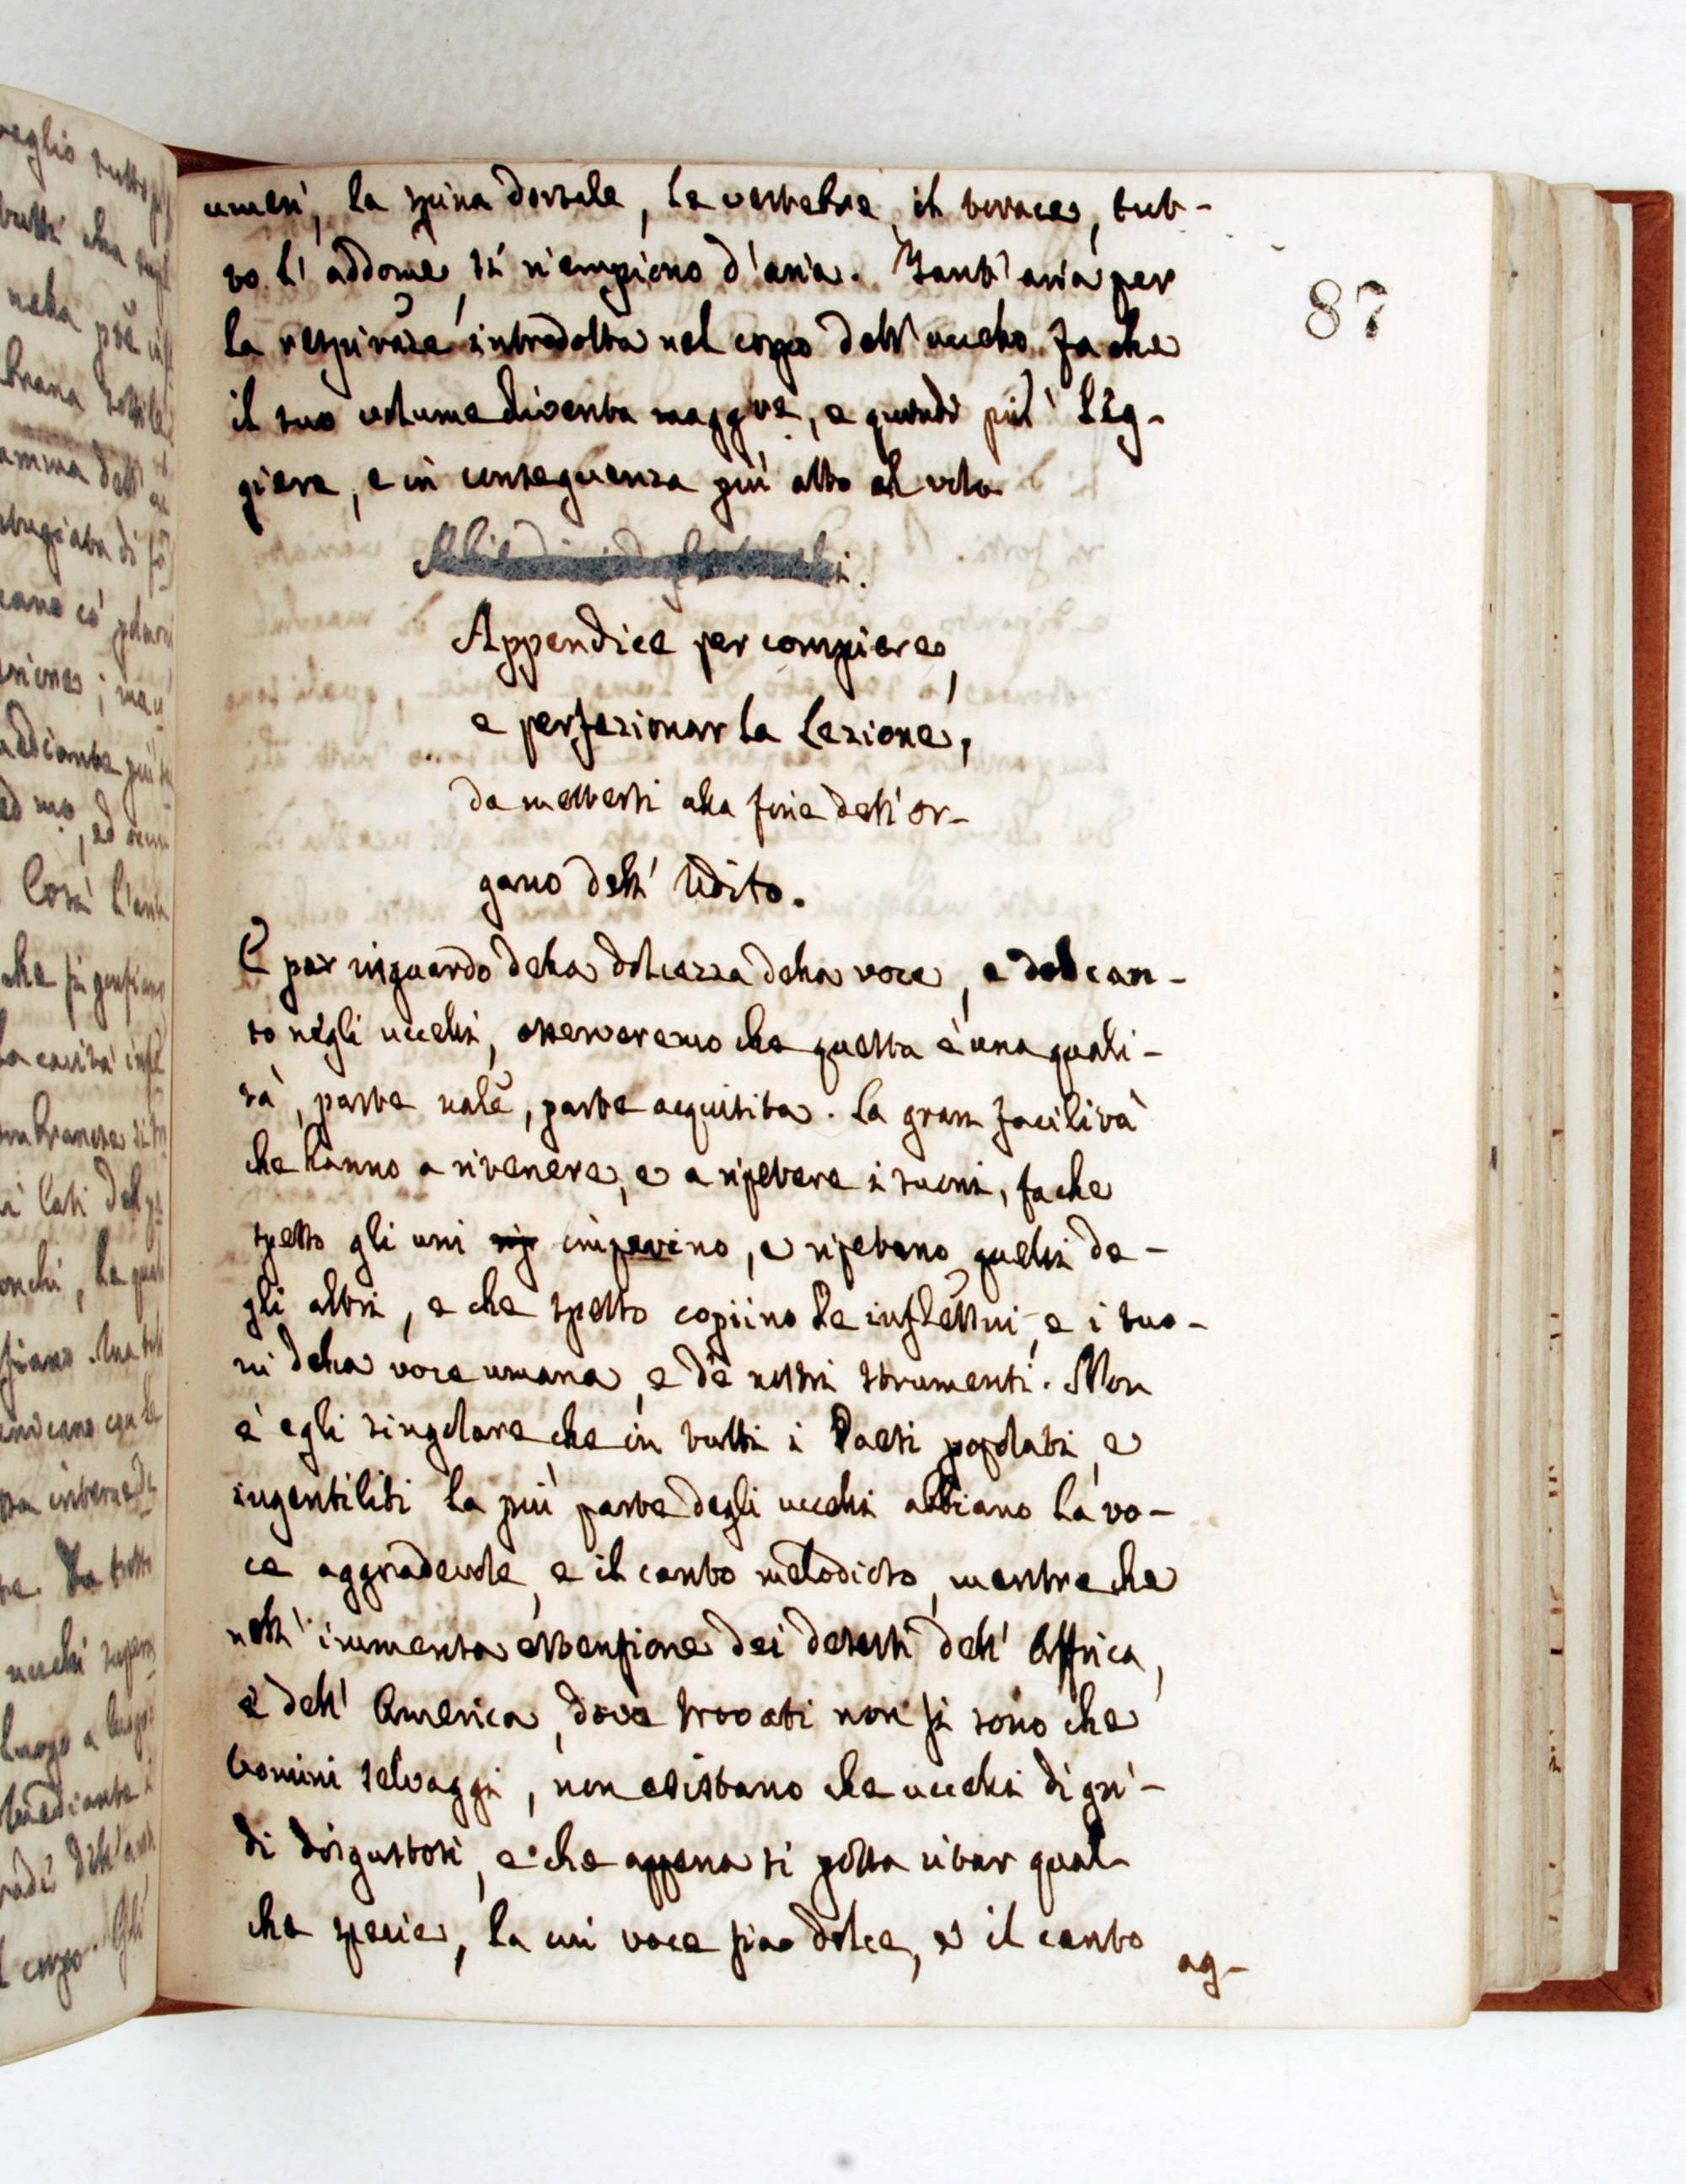 umeri, la spina dorsale, le vertebre, il torace, tut-
to l'addome si riempiono d'aria. Tant'aria per
la respiraze introdotta nel corpo dell'uccello fa che
il suo volume diventa maggre, e quindi più leg-
giere, e in conseguenza più atto al volo
Appendice per compiere,
e perfezionar la Lezione,
da mettersi alla fine dell'or-
gano dell'Udito.
E per riguardo della dolcezza della voce, e del can-
to negli uccelli, osserveremo che questa è una quali-
tà, parte nale, parte acquisita. La gran facilità
che hanno a ritenere, e a ripetere i suoni, fa che
spesso gli uni imparino, e ripetano quelli de-
gli altri, e che spesso copiino le inflessni, e i suo-
ni della voce umana, e de nostri strumenti. Non
è egli singolare che in tutti i Paesi popolati, e
ingentiliti la più parte degli uccelli abbiano la vo-
ce aggradevole, e il canto melodioso, mentre che
nell'immensa estensione dei deserti dell'Affrica,
e dell'America, dove trovati non si sono che
Uomini selvaggi, non esistano che uccelli di gri-
di disgustosi, e che appena si possa citar qual-
che specie, la cui voce sia dolce, e il canto
ag-
87